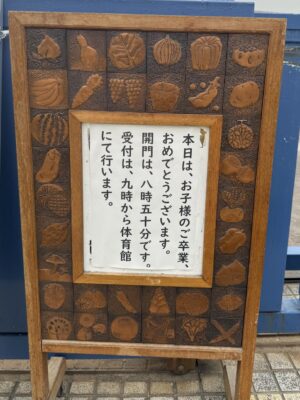 本日は、お子様のご卒業、
おめでとうございます。
開門は、八時五十分です。
受付は、九時から体育館
にて行います。